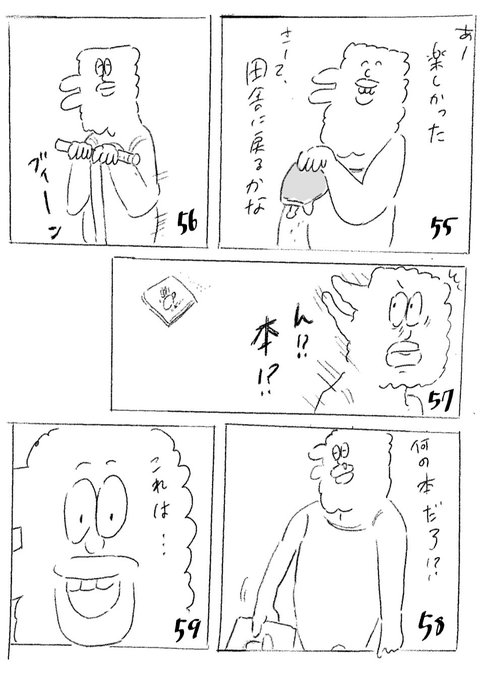 あー
楽しかった
さーて、
田舎に戻るかな
55
ブィーン
56
ん!?
本!?
57
何の本だろ!?
58
これは…
59